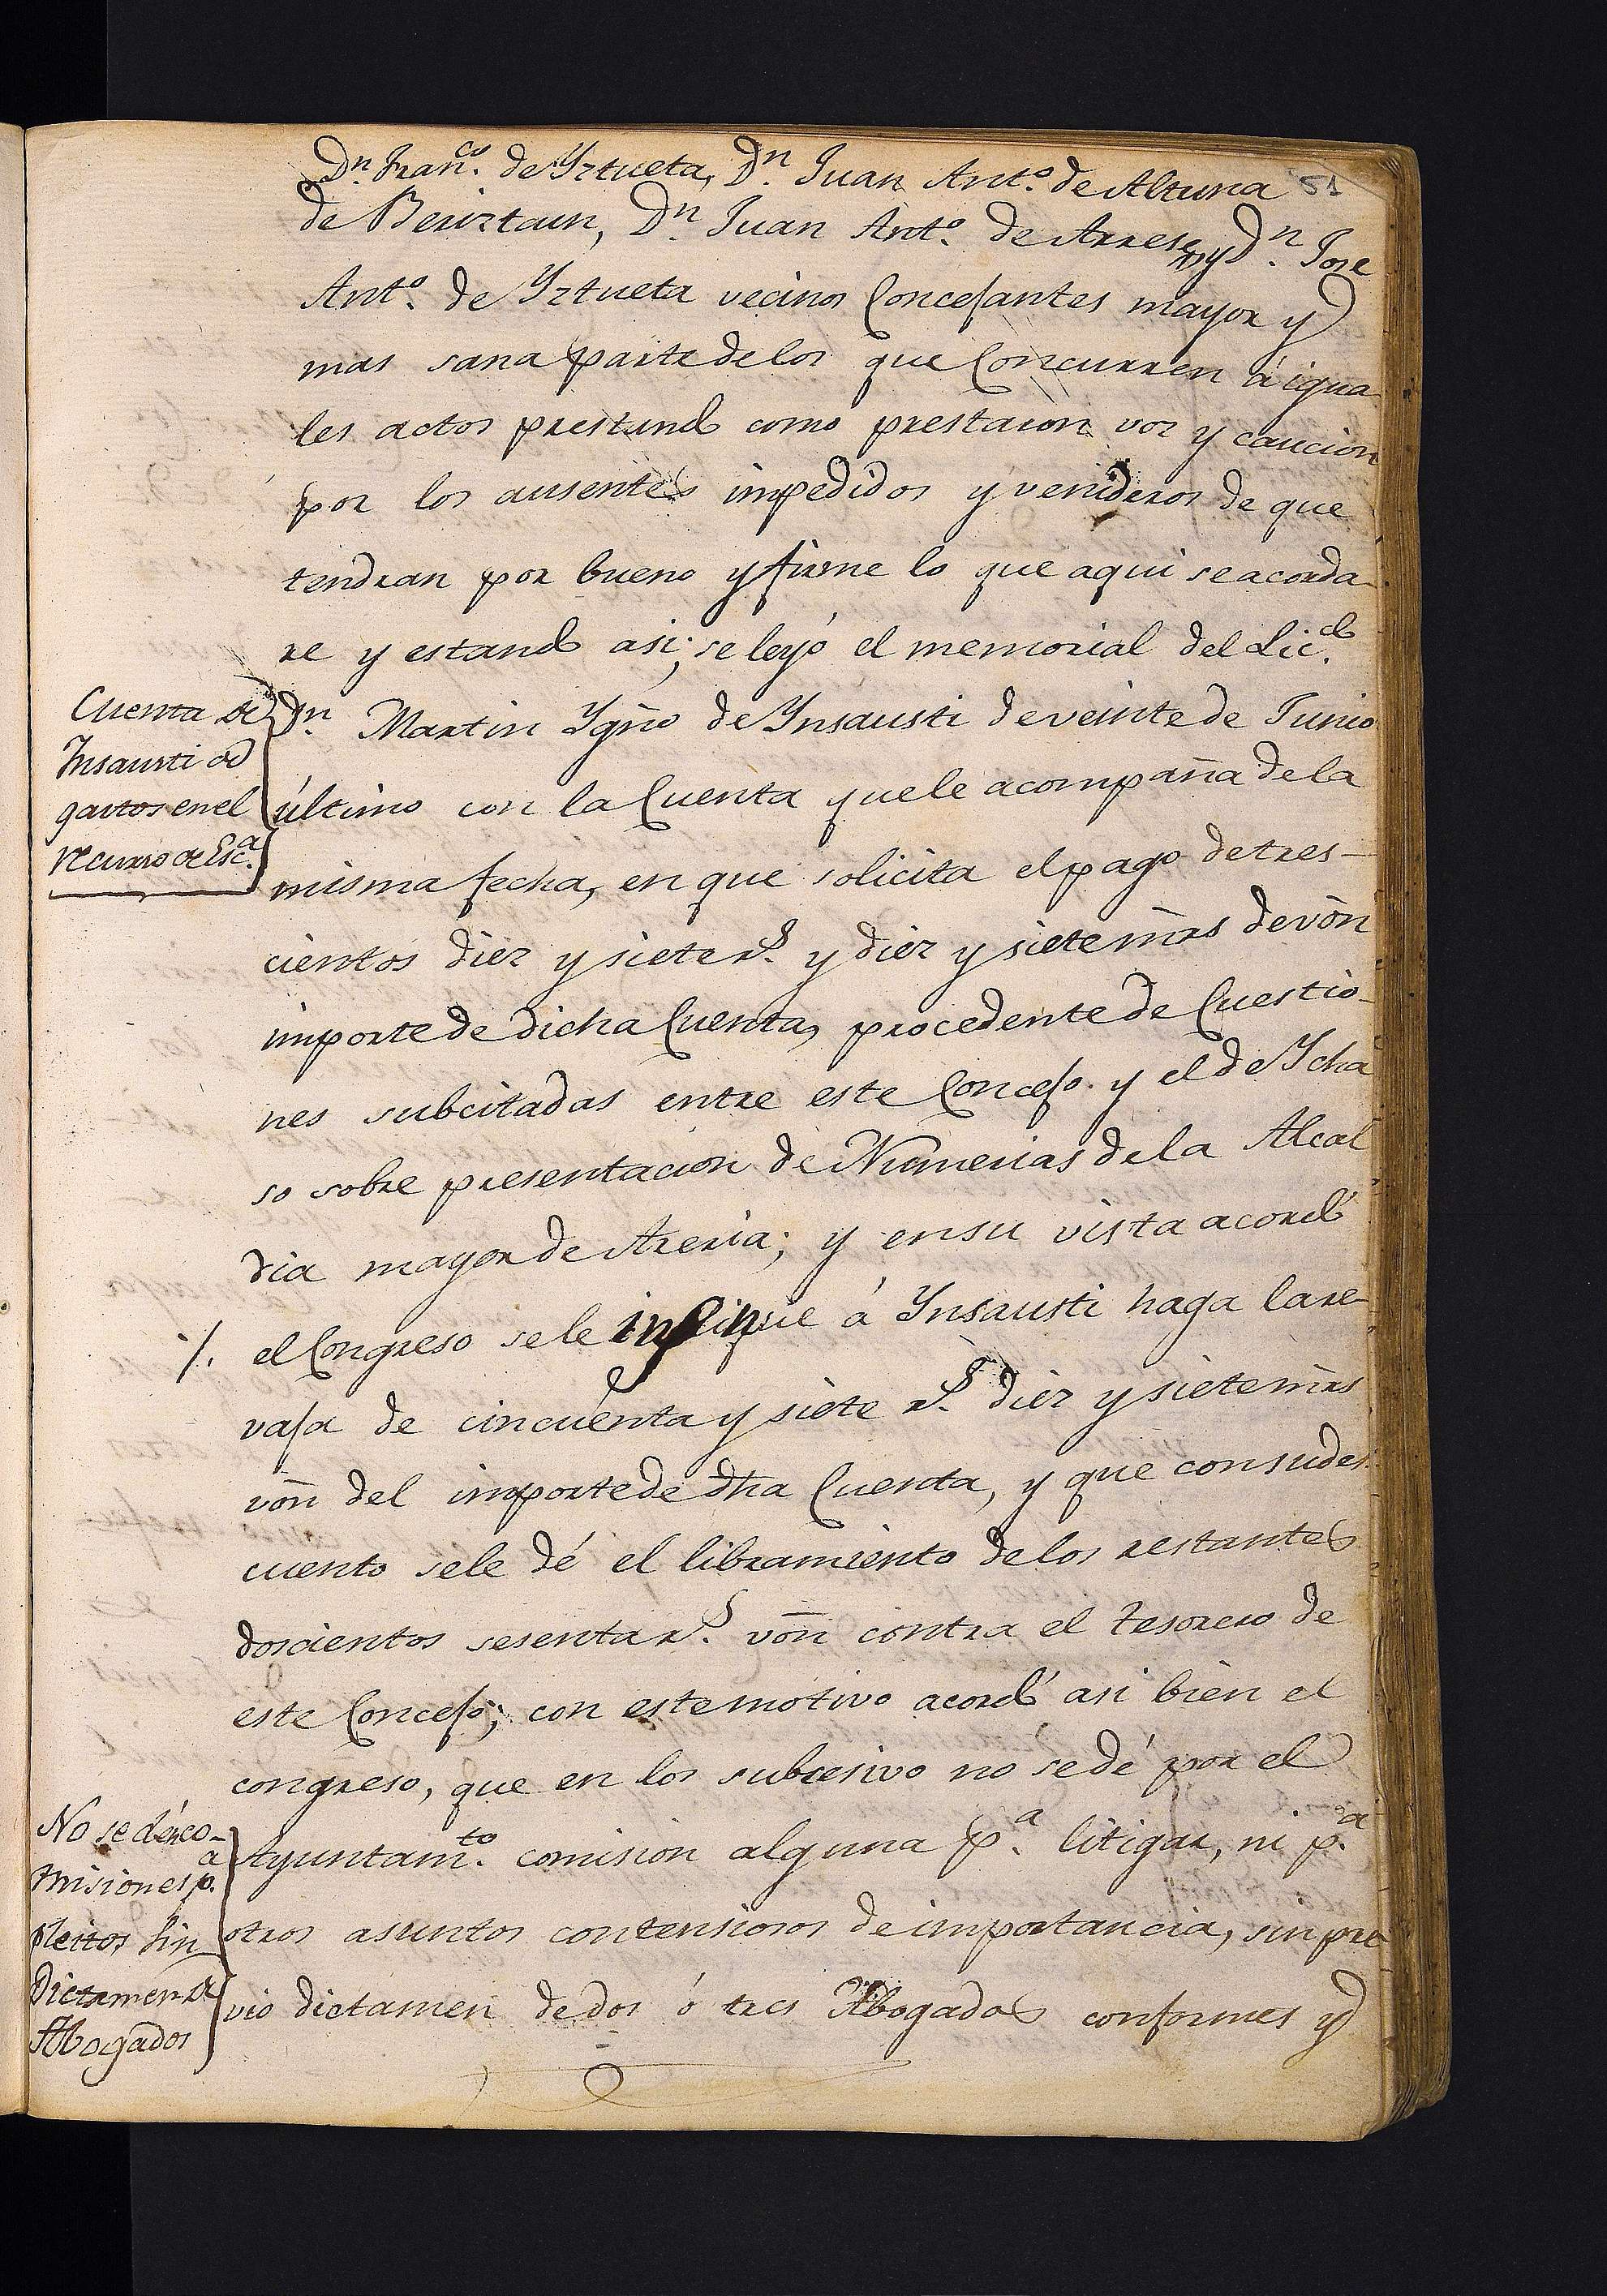 51
Dn. Franco. de Yztueta, Dn. Juan Anto. de Altuna
de Beiztain, Dn. Juan Anto. de Arrese, y Dn. Jose
Anto. de Yztueta vecinos Concejantes mayor y
mas sana parte de los que Concurren á igua
les actos prestando como prestaron voz y caucion
por los ausentes impedidos y venideros de que
tendran por bueno y firme lo que aqui se acorda
re y estando asi; se leyó el memorial del Licdo.
Cuenta de
Insausti de
gastos en el
recurso de Esca.
Dn. Martin Ygño de Ynsausti de veinte de Junio
último con la Cuenta que le acompaña de la
misma fecha, en que solicita el pago de tres-
cientos diez y siete rs. y diez y siete mrs de von
importe de dicha Cuenta, procedente de Cuestio-
nes subcitadas entre este Concejo. y el de Ycha
so sobre presentacion de Numerias de la Alcal
dia mayor de Areria; y en su vista acordó
el Congreso se le á Ynsausti haga la re-
vaja de cincuenta y siete rs. diez y siete mrs
von del importe de dha Cuenta, y que con su des
cuento se le dé el libramiento de los restantes
doscientos sesenta rs. von contra el tesorero de
este Concejo; con este motivo acordó asi bien el
congreso, que en los subcesivo no se dé por el
No se dén co-
misiones pa.
pleitos sin
Dictamen de
Abogados
Ayuntamto. comision alguna pa. litigar, ni pa.
otros asuntos contensiosos de importancia, sin pre
vio dictamen de dos ó tres Abogados conformes y